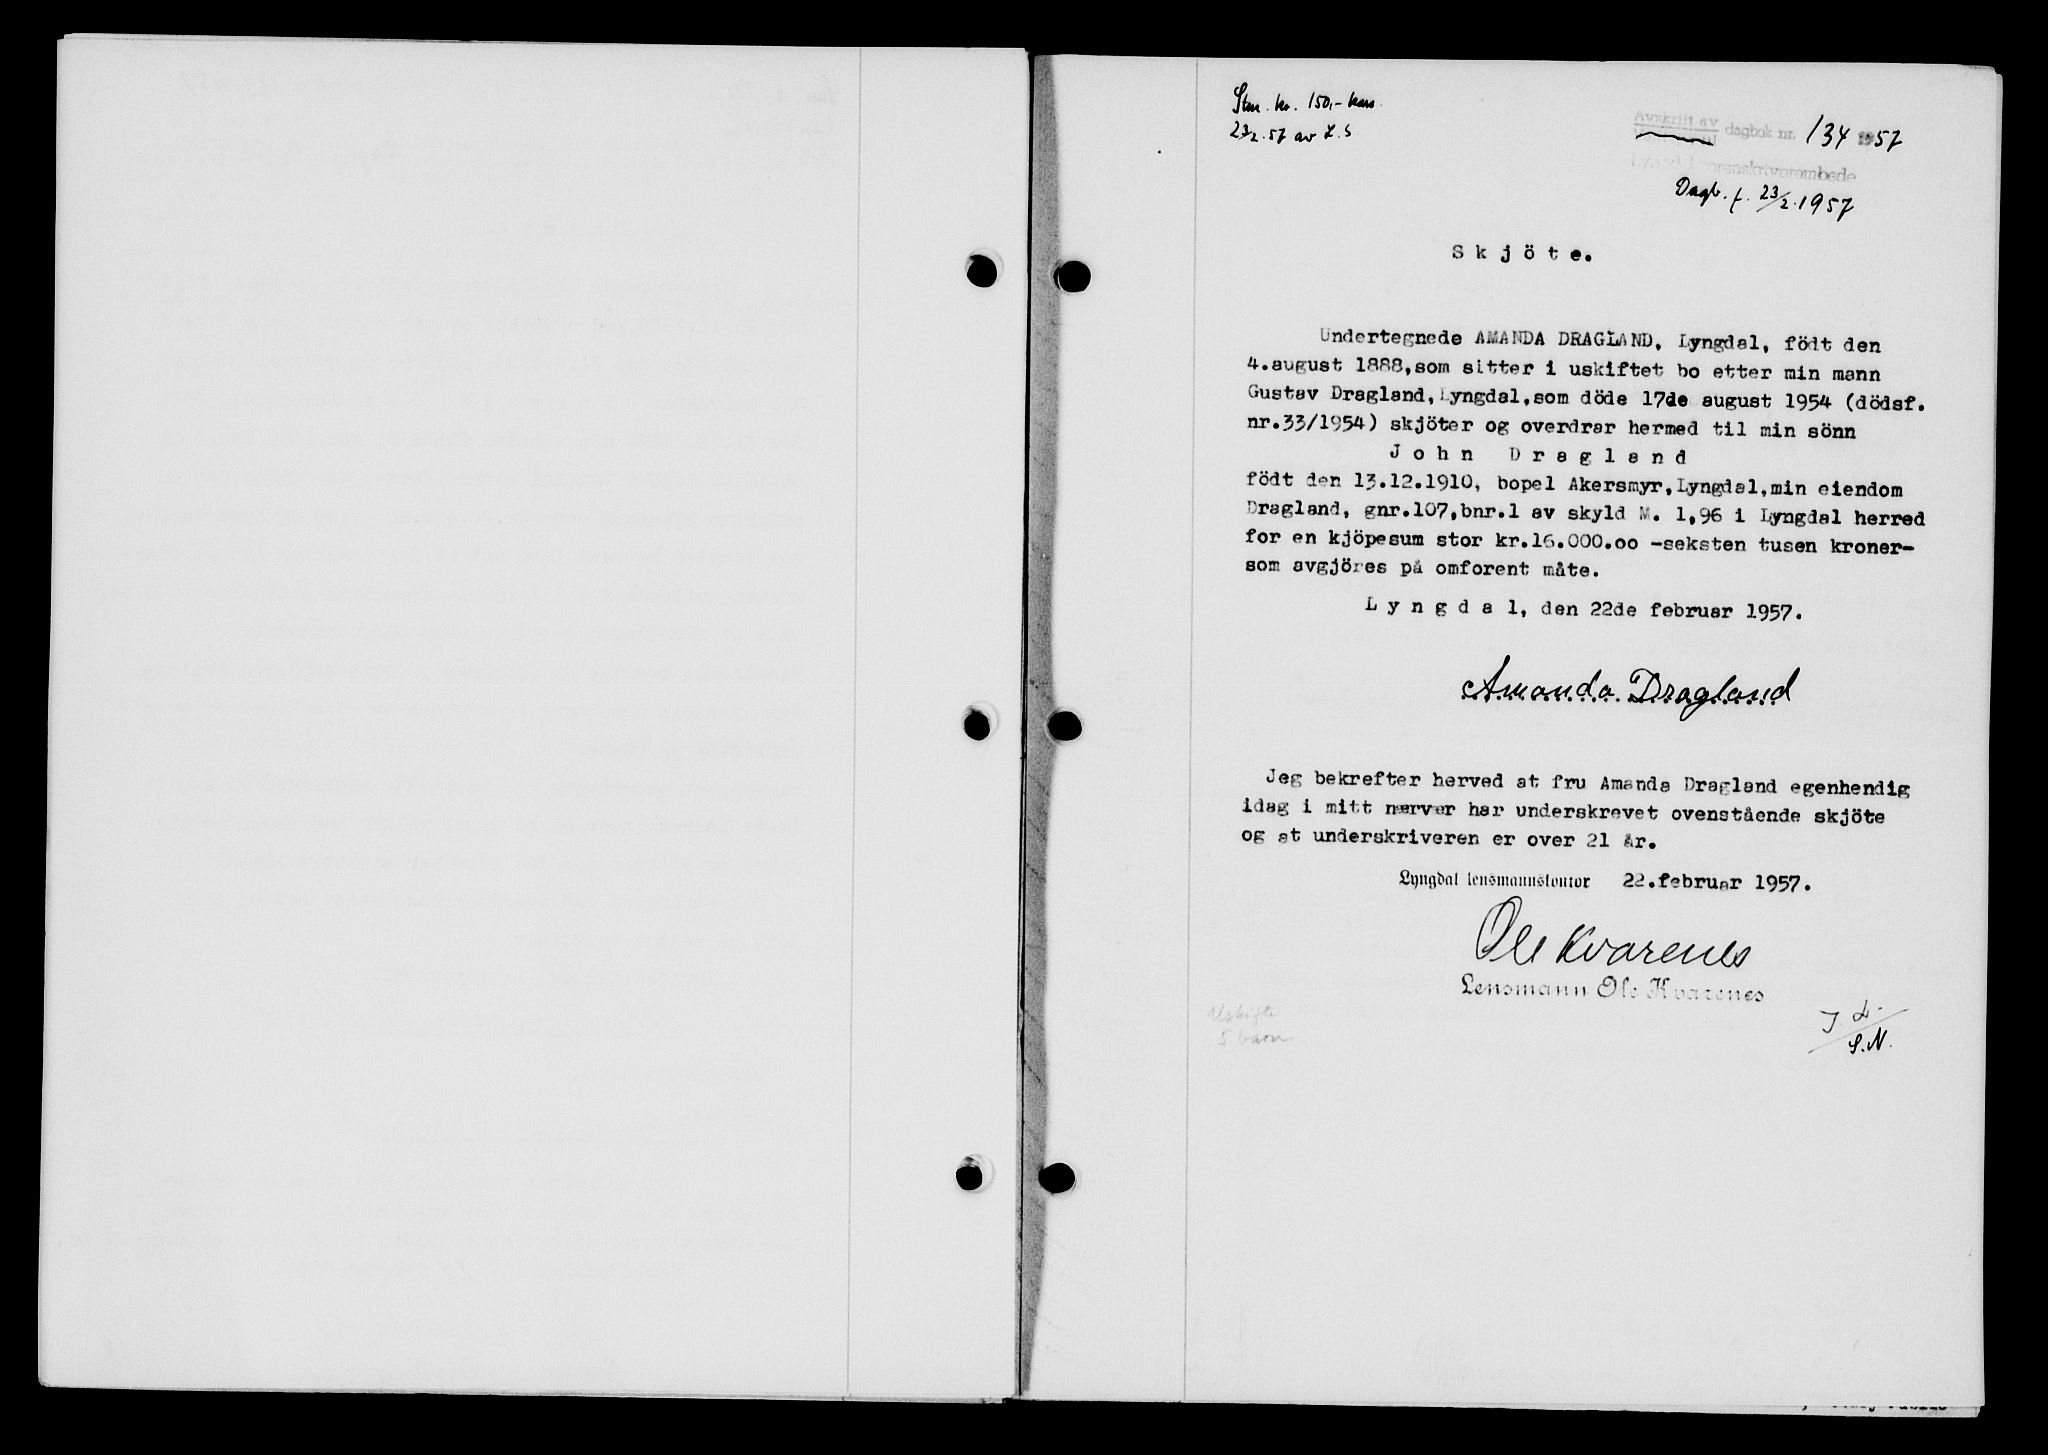 Stm. kr. 150,- kass.
23/2.57 av L.S
Avskrift av dagbok nr. 134 1957
orenskriverembede
Dagb. f. 23/2.1957
S k j ö t e.
Undertegnede AMANDA DRAGLAND, Lyngdal, födt den
4.august 1888,som sitter i uskiftet bo etter min mann
Gustav Dragland,Lyngdal,som döde 17de august 1954 (dödsf.
nr.33/1954) skjöter og overdrar hermed til min sönn
J o h n D r a g l a n d
födt den 13.12.1910, bopel Akersmyr,Lyngdal,min eiendom
Dragland, gnr.107,bnr.1 av skyld M. 1,96 i Lyngdal herred
for en kjöpesum stor kr.16.000.oo -seksten tusen kroner-
som avgjöres på omforent måte.
L y n g d a l, den 22de februar 1957.
Amanda Dragland
Jeg bekrefter herved at fru Amanda Dragland egenhendig
idag i mitt nærvær har underskrevet ovenstående skjöte
og at underskriveren er over 21 år.
Lyngdal lensmannskontor 22.februar 1957.
Ole Kvarenes
Lensmann Ole Kvarenes
Uskifte
5 barn
J. L.
S.N.